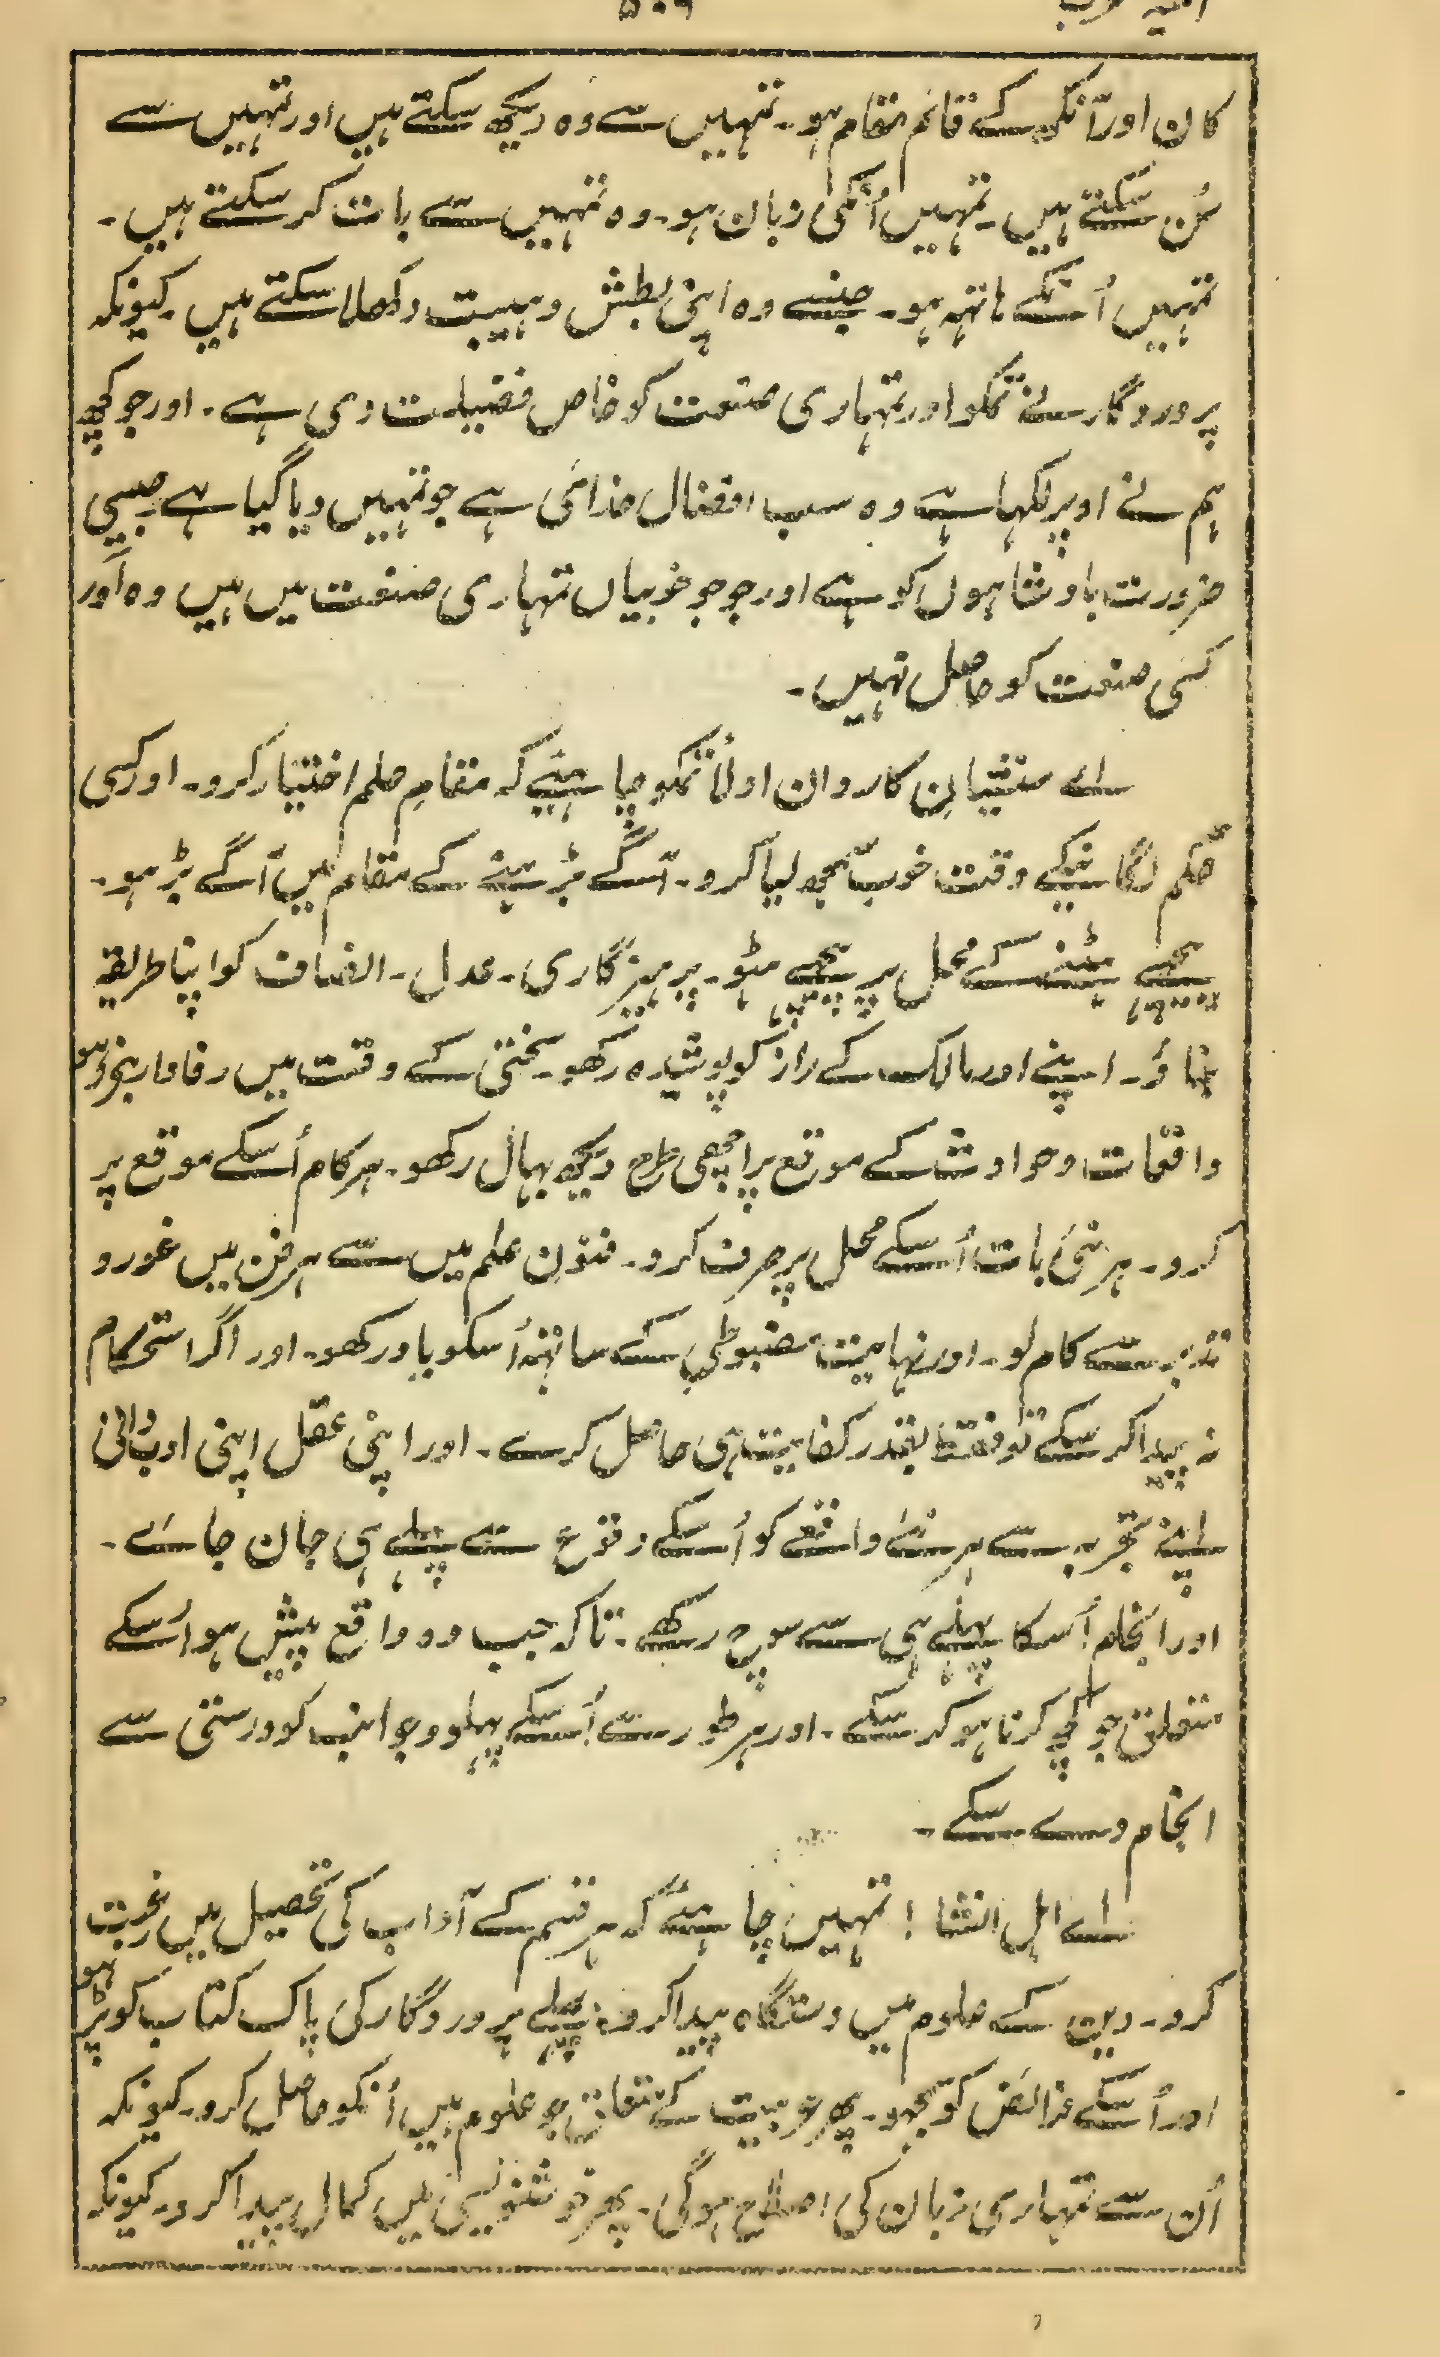 ۵۰۹
کان اور آنکھ کے قائم مقام ہو۔ تمہیں سے وہ دیکھ سکتے ہیں اور تمہیں سے
سُن سکتے ہیں۔ تمہیں اُنکی زبان ہو۔ وہ تمہیں سے بات کر سکتے ہیں۔
تمہیں اُنکے ہاتھہ ہو۔ جنسے وہ اپنی بطش و ہیبت دکھلا سکتے ہیں۔ کیونکہ
پروردگار نے تمکو اور تمہاری صنعت کو خاص فضیلت دی ہے۔ اور جو کچھ
ہم نے اوپر لکہا ہے وہ سب افضال خدائی ہے جو تمہیں دیا گیا ہے۔ جیسی
ضرورت بادشاہوں کو ہے اور جو جو خوبیاں تمہاری صنعت میں ہیں وہ اَور
کسی صنعت کو حاصل نہیں۔
اے منشیانِ کاردوان اولاً تمکو چاہیئے کہ مقامِ حلم اختیار کرو۔ اور کسی
حکم لگانیکے وقت خوب سمجھ لیا کرو۔ آگے بڑہنے کے مقام میں آگے بڑہو۔
پیچھے ہٹنے کے محل پر پیچھے ہٹو۔ پرہیزگاری۔ عدل۔ انصاف کو اپنا طریقہ
بناؤ۔ اپنے اور مالک کے راز کو پوشیدہ رکھو۔ سختی کے وقت میں وفادار بنے رہو
واقعات و حوادث کے موقع پر اچھی طرح دیکھ بہال رکھو۔ ہر کام اُسکے موقع پر
کرو۔ ہر نئی بات اُسکے محل پر صرف کرو۔ فنونِ علم میں سے ہر فن میں غور و
تدبر سے کام لو۔ اور نہایت مضبوطی کے ساتہہ اُسکو یاد رکھو۔ اور اگر استحکام
نہ پیدا کر سکے تو فقط بقدر کفایت ہی حاصل کرے۔ اور اپنی عقل اپنی ادب دانی
اپنے تجربہ سے ہر نئے واقعے کو اُسکے وقوع سے پہلے ہی جان جائے۔
اور انجام اُسکا پہلے ہی سے سوچ رکھے۔ تاکہ جب وہ واقع پیش ہو اُسکے
متعلق جو کچھ کرنا ہو کر سکے۔ اور ہر طور سے اُسکے پہلو و جوانب کو درستی سے
انجام دے سکے۔
اے اہل انشا! تمہیں چاہئے کہ ہر قسم کے آداب کی تحصیل میں رغبت
کرو۔ دین کے علوم میں دستگاہ پیدا کرو۔ پہلے پروردگار کی پاک کتاب کو پڑہو
اور اُسکے فرائض کو سمجہو۔ پھر عربیت کے متعلق جو علوم ہیں اُنکو حاصل کرو۔ کیونکہ
اُن سے تمہاری زبان کی اصلاح ہوگی۔ پھر خوشنویسی میں کمال پیدا کرو۔ کیونکہ